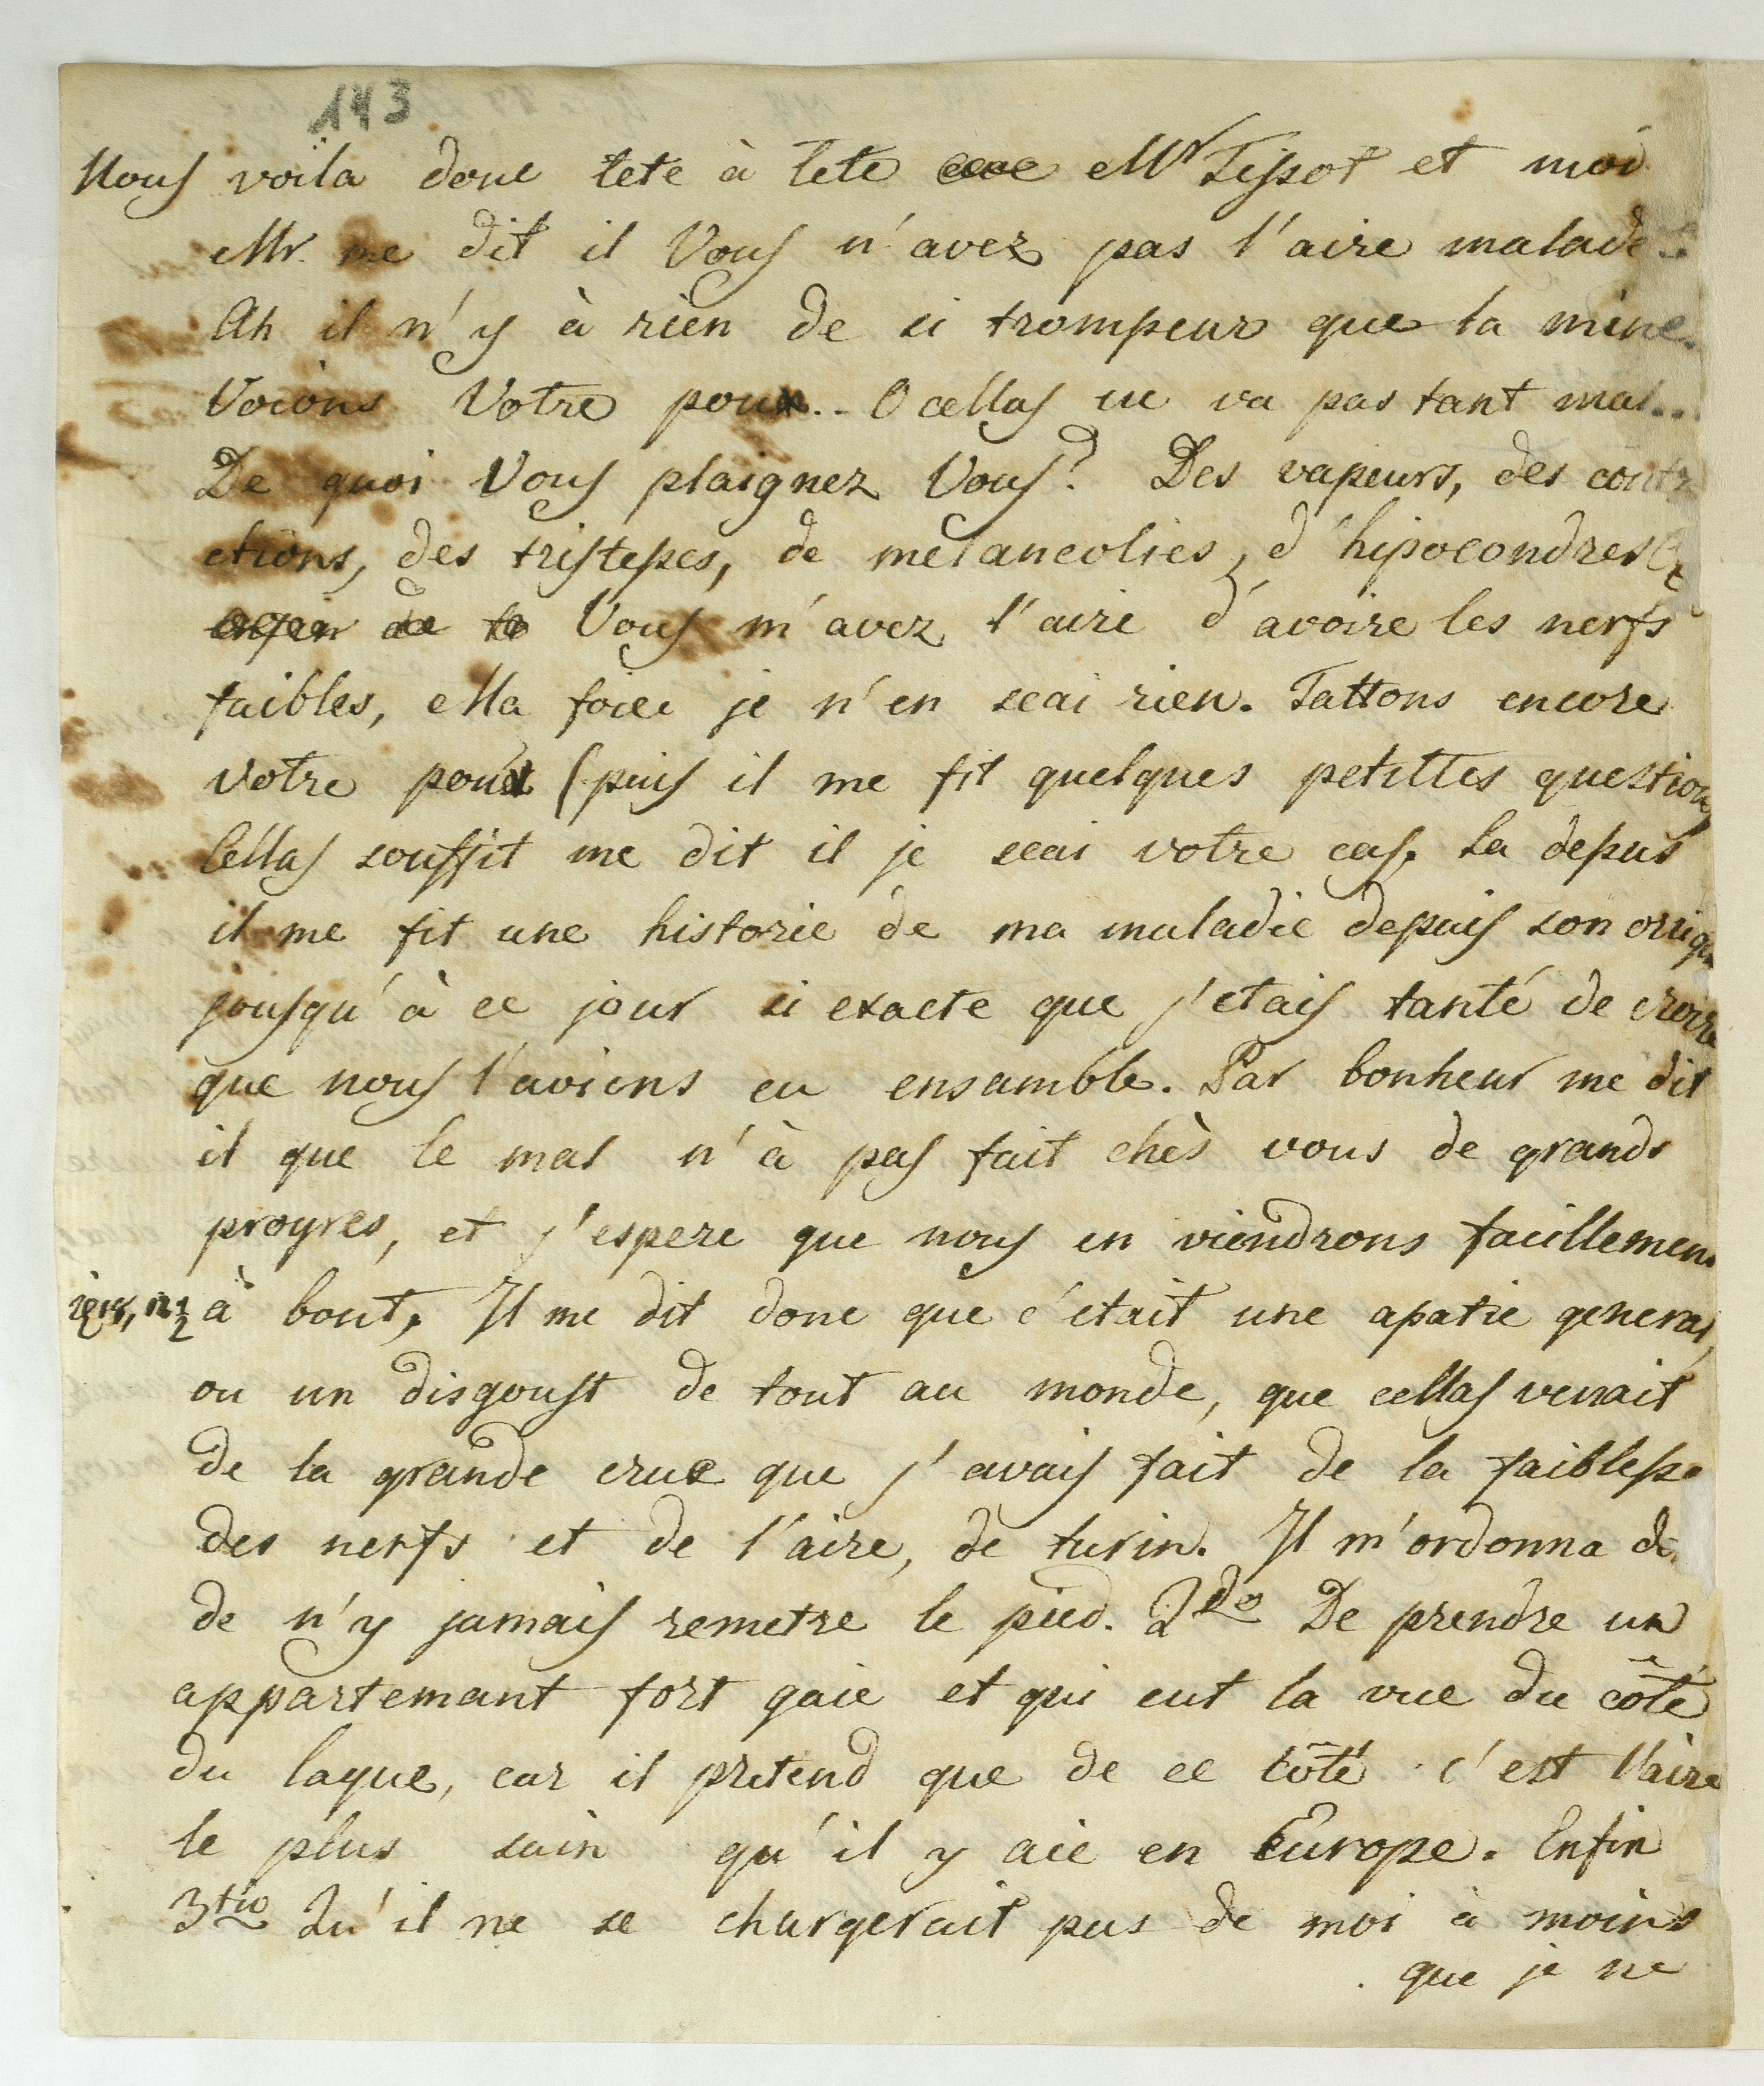 143
Nous voila donc tete à tete Mr Tissot et moi
Mr. me dit il Vous n'avez pas l'aire malade..
Ah il n'y à rien de si trompeur que la mine.
Voions Votre poux.. O cellas ne va pas tant mal...
De quoi Vous plaignez Vous? Des vapeurs, des contr
ctions, des tristesses, de melancolies, d'hipocondres
Vous m'avez l'aire d'avoire les nerfs
faibles, Ma foiee je n'en scai rien. Tattons encore
votre (puis il me fit quelques petittes question
Cellas souffit me dit il je scai votre cas. La depus
il me fit une historie de ma maladie depuis son orrigin
jousqu'à ce jour si exacte que j'etais tanté de croire
que nous l'avions eu ensamble. Par bonheur me dit
il que le mal n'à pas fait chès vous de grands
progres, et j'espere que nous en viendrons facillement
à bout, Il me dit donc que c'etait une apatie general,
ou un disgoust de tout au monde, que cellas venait
de la grande crue que j'avais fait de la faiblesse
des nerfs et de l'aire, de turin. Il m'ordonna de
de n'y jamais remetre le pied. 2do De prendre un
appartemant fort gaie et qui eut la vue du côté
du laque, car il pretend que de ce côté c'est l'aire
le plus sain qu'il y aie en Europe. Enfin
3tio Qu'il ne se chargerait pas de moi à moins
que je ne